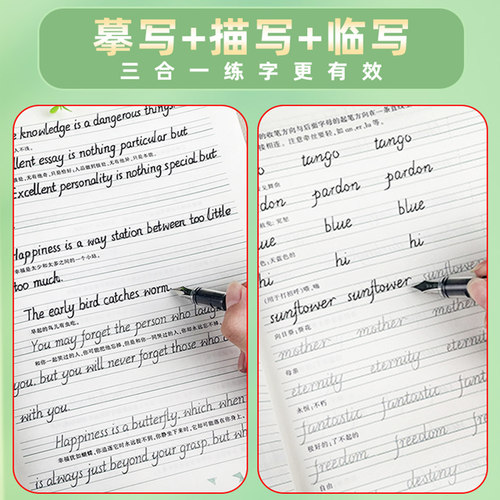 摹写+描写+临写
三合一练字更有效
knowledge is a dangerous thing
llent essay is nothing particular but
Excellent personality is nothing special but
Happiness is a way station between too little
幸福是太少和太多之间的一个小站。
too much.
The early bird catches worm.
早起的鸟儿有虫吃。
You may forget the person who laugh
you, but you will never forget those who
with you.
Happiness is a butterfly, which, when
幸福犹如蝴蝶，你追逐它时永远抓不到，你静坐下来时，它却可能落在你身上。
is always just beyond your grasp, but wh
的收笔方向与后面字母的起笔方向在一条直线
tango tango
don pardon pardon
blue blue
hi hi
(用于打招呼)嘿，嗨
sunflower sunflower sunflower
向日葵；葵花
mother mother mother
母亲
eternity eternity eternity
永恒，不朽
fantastic fantastic fantastic
极好的；了不起的
freedom freedom freedom
自由
destiny